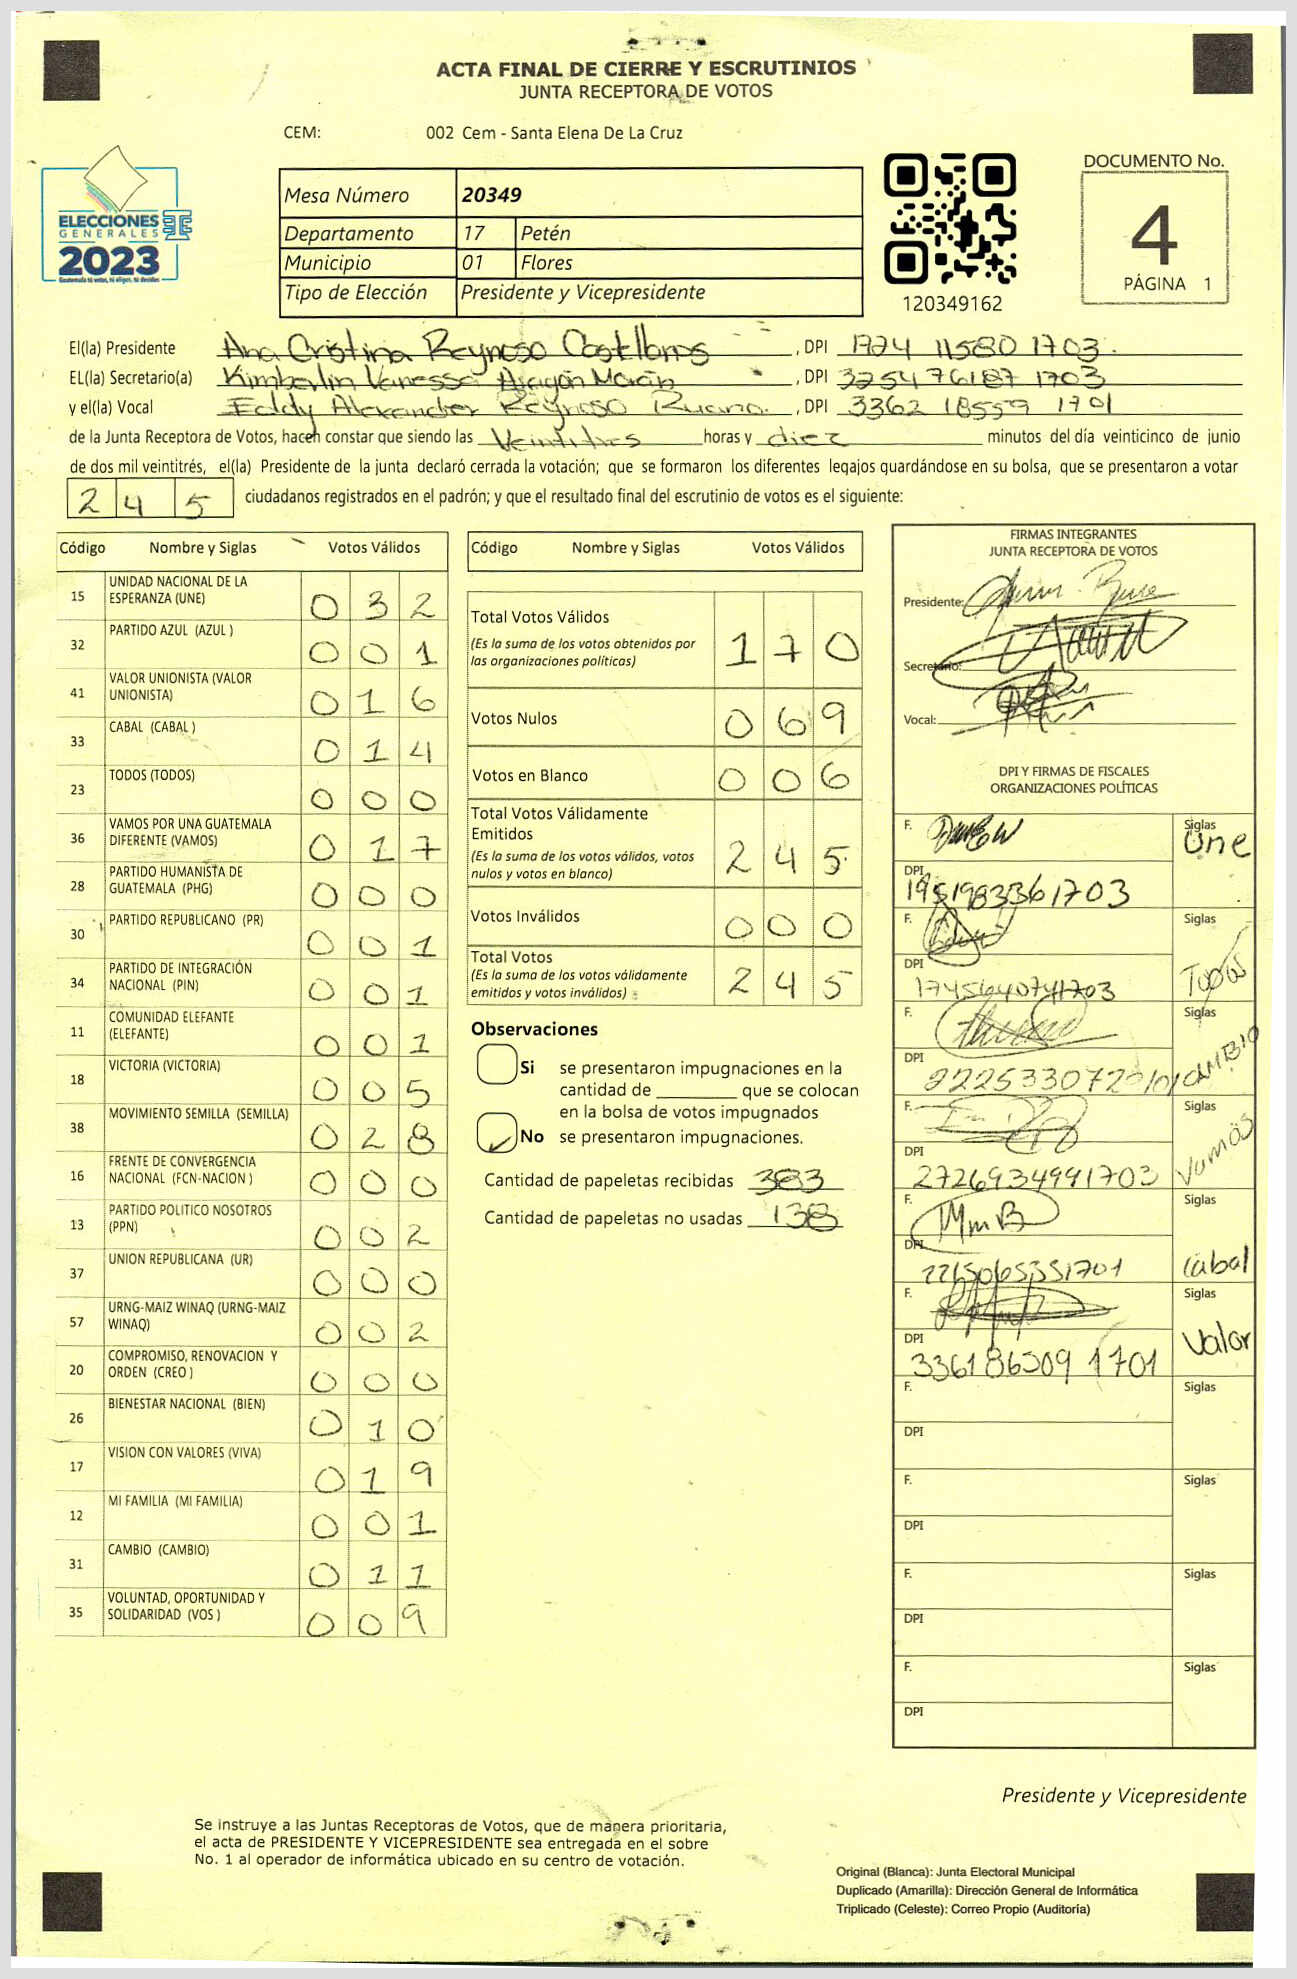 ACTA FINAL DE CIERRE Y ESCRUTINIOS
JUNTA RECEPTORA DE VOTOS
CEM: 002 Cem - Santa Elena De La Cruz
ELECCIONES
GENERALES
2023
Guatemala tú votas, tú eliges, tú decides
Mesa Número 20349
Departamento 17 Petén
Municipio 01 Flores
Tipo de Elección Presidente y Vicepresidente
120349162
DOCUMENTO No.
4
PÁGINA 1
El(la) Presidente Ana Cristina Reynoso Castellanos, DPI 1774 11580 1703.
EL(la) Secretario(a) Kimberlin Vanessa Aragón Morán, DPI 3254 76187 1703
y el(la) Vocal Eddy Alexander Reynoso Ruano., DPI 3362 18559 1701
de la Junta Receptora de Votos, hacen constar que siendo las Veintitres horas y diez minutos del día veinticinco de junio
de dos mil veintitrés, el(la) Presidente de la junta declaró cerrada la votación; que se formaron los diferentes legajos guardándose en su bolsa, que se presentaron a votar
245 ciudadanos registrados en el padrón; y que el resultado final del escrutinio de votos es el siguiente:
Código Nombre y Siglas Votos Válidos
15 UNIDAD NACIONAL DE LA ESPERANZA (UNE) 032
32 PARTIDO AZUL (AZUL ) 001
41 VALOR UNIONISTA (VALOR UNIONISTA) 016
33 CABAL (CABAL ) 014
23 TODOS (TODOS) 000
36 VAMOS POR UNA GUATEMALA DIFERENTE (VAMOS) 017
28 PARTIDO HUMANISTA DE GUATEMALA (PHG) 000
30 PARTIDO REPUBLICANO (PR) 001
34 PARTIDO DE INTEGRACIÓN NACIONAL (PIN) 001
11 COMUNIDAD ELEFANTE (ELEFANTE) 001
18 VICTORIA (VICTORIA) 005
38 MOVIMIENTO SEMILLA (SEMILLA) 028
16 FRENTE DE CONVERGENCIA NACIONAL (FCN-NACION ) 000
13 PARTIDO POLITICO NOSOTROS (PPN) 002
37 UNION REPUBLICANA (UR) 000
57 URNG-MAIZ WINAQ (URNG-MAIZ WINAQ) 002
20 COMPROMISO, RENOVACION Y ORDEN (CREO ) 000
26 BIENESTAR NACIONAL (BIEN) 010
17 VISION CON VALORES (VIVA) 019
12 MI FAMILIA (MI FAMILIA) 001
31 CAMBIO (CAMBIO) 011
35 VOLUNTAD, OPORTUNIDAD Y SOLIDARIDAD (VOS ) 009
Código Nombre y Siglas Votos Válidos
Total Votos Válidos 170
(Es la suma de los votos obtenidos por
las organizaciones políticas)
Votos Nulos 069
Votos en Blanco 006
Total Votos Válidamente
Emitidos 245
(Es la suma de los votos válidos, votos
nulos y votos en blanco)
Votos Inválidos 000
Total Votos 245
(Es la suma de los votos válidamente
emitidos y votos inválidos)
Observaciones
Si se presentaron impugnaciones en la
cantidad de ________ que se colocan
en la bolsa de votos impugnados
No se presentaron impugnaciones.
Cantidad de papeletas recibidas 383
Cantidad de papeletas no usadas 138
FIRMAS INTEGRANTES
JUNTA RECEPTORA DE VOTOS
Presidente:
Secretario:
Vocal:
DPI Y FIRMAS DE FISCALES
ORGANIZACIONES POLÍTICAS
F. Siglas Une
DPI 1951983361703
F. Siglas Todos
DPI 1745640741703
F. Siglas CAMBIO
DPI
F. Siglas Vamos
DPI 2726934991703
F. Siglas Cabal
DPI 2265065351701
F. Siglas Valor
DPI 336186509 1701
F. Siglas
DPI
F. Siglas
DPI
F. Siglas
DPI
F. Siglas
DPI
Presidente y Vicepresidente
Se instruye a las Juntas Receptoras de Votos, que de manera prioritaria,
el acta de PRESIDENTE Y VICEPRESIDENTE sea entregada en el sobre
No. 1 al operador de informática ubicado en su centro de votación.
Original (Blanca): Junta Electoral Municipal
Duplicado (Amarilla): Dirección General de Informática
Triplicado (Celeste): Correo Propio (Auditoría)